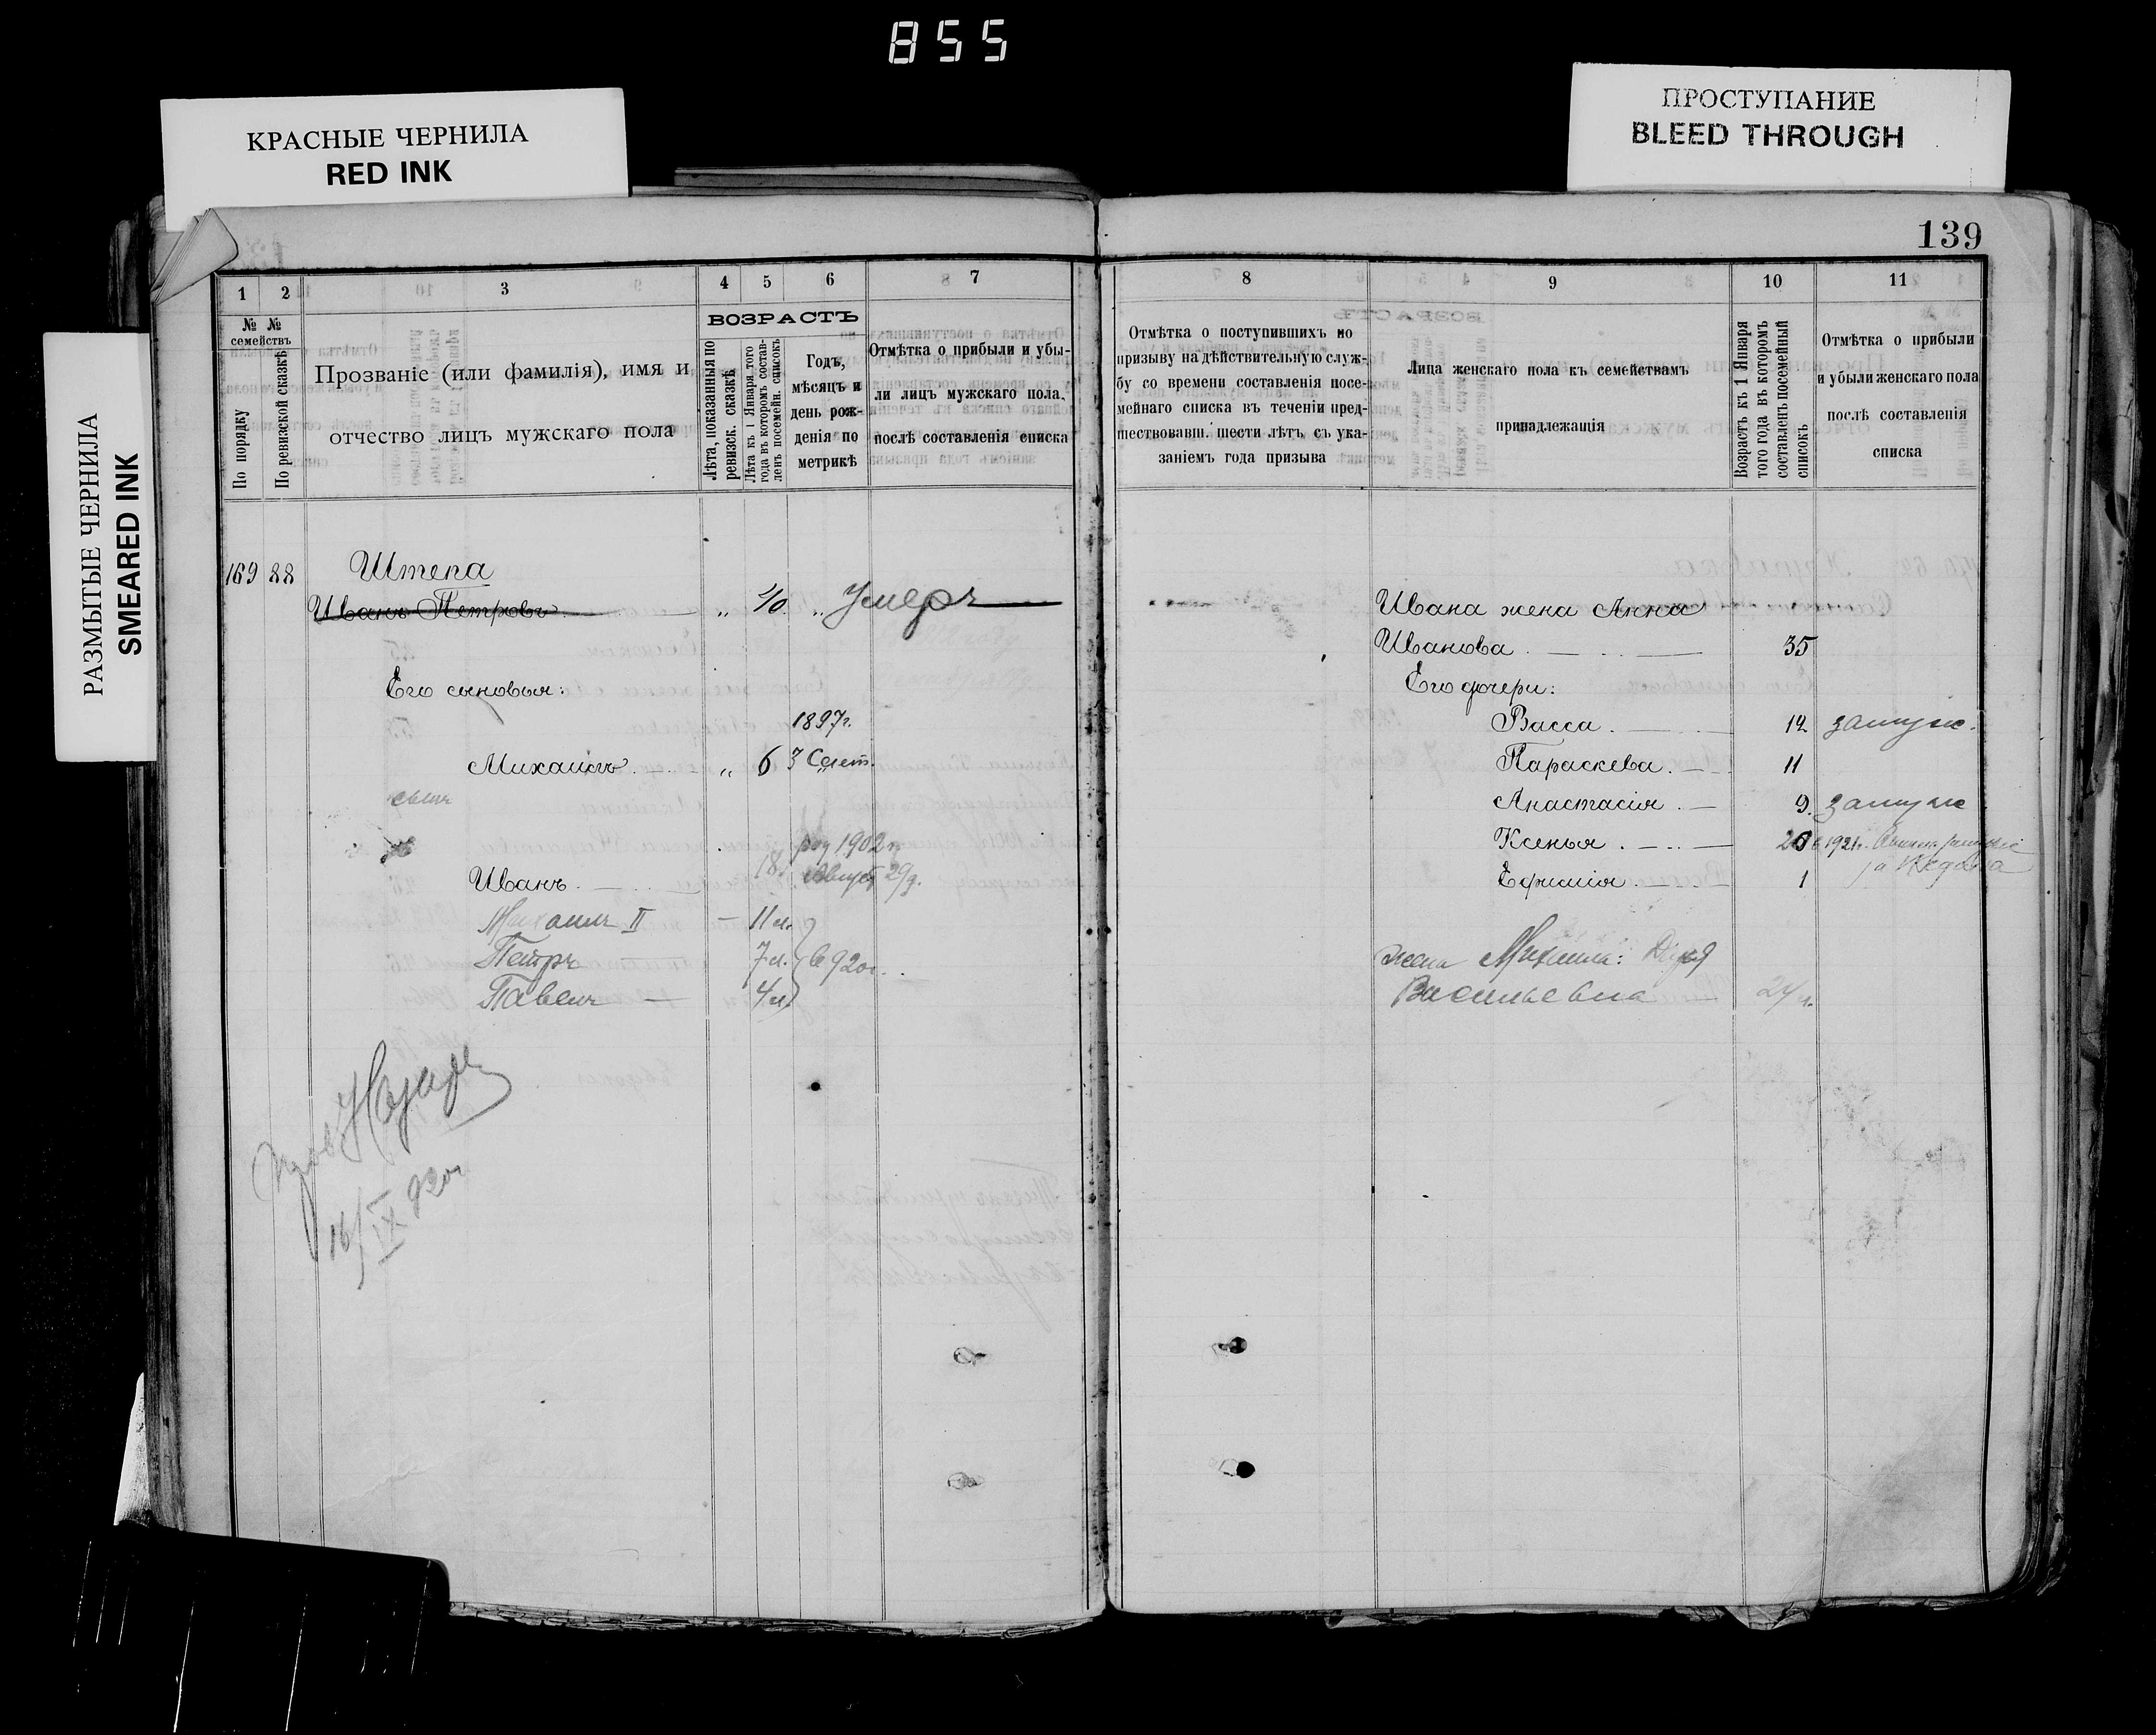 855
КРАСНЫЕ ЧЕРНИЛА
RED INK
ПРОСТУПАНИЕ
BLEED THROUGH
РАЗМЫТЫЕ ЧЕРНИЛА
SMEARED INK
139
1 2 3 4 5 6 7
№ № семействъ
По порядку
По ревизской сказкѣ
Прозваніе (или фамилія), имя и
отчество лицъ мужскаго пола
ВОЗРАСТЪ
Лѣта, показанныя по
ревизск. сказкѣ
Лѣта къ 1 Января того
года въ которомъ состав-
ленъ посемейн. списокъ
Годъ,
мѣсяцъ и
день рож-
денія по
метрикѣ
Отмѣтка о прибыли и убы-
ли лицъ мужскаго пола,
послѣ составленія списка
169 88 Штепа
Иванъ Петровъ „ 40 „ Умеръ
Его сыновья:
1897г.
Михаилъ „ 6 3 Сент.
сынъ
род 1902 г
Иванъ 18 Август 29д.
Михаилъ II — 11 м.
Петръ 7 м. в 920г.
Павелъ — 4 м
16/IX 920г
8 9 10 11
Отмѣтка о поступившихъ по
призыву на дѣйствительную служ-
бу со времени составленія посе-
мейнаго списка въ теченіи пред-
шествовавш. шести лѣтъ съ ука-
заніемъ года призыва
Лица женскаго пола къ семействамъ
принадлежащія
Возрастъ къ 1 Января
того года въ которомъ
составленъ посемейный
списокъ
Отмѣтка о прибыли
и убыли женскаго пола
послѣ составленія
списка
Ивана жена Анна
Иванова 35
Его дочери:
Васса 12 замуж.
Параскева 11
Анастасія 9 замуж
Ксенья 20 в 1921г.
Ефимія 1
жена Михаила: Дарья
Васильевна 24 г.